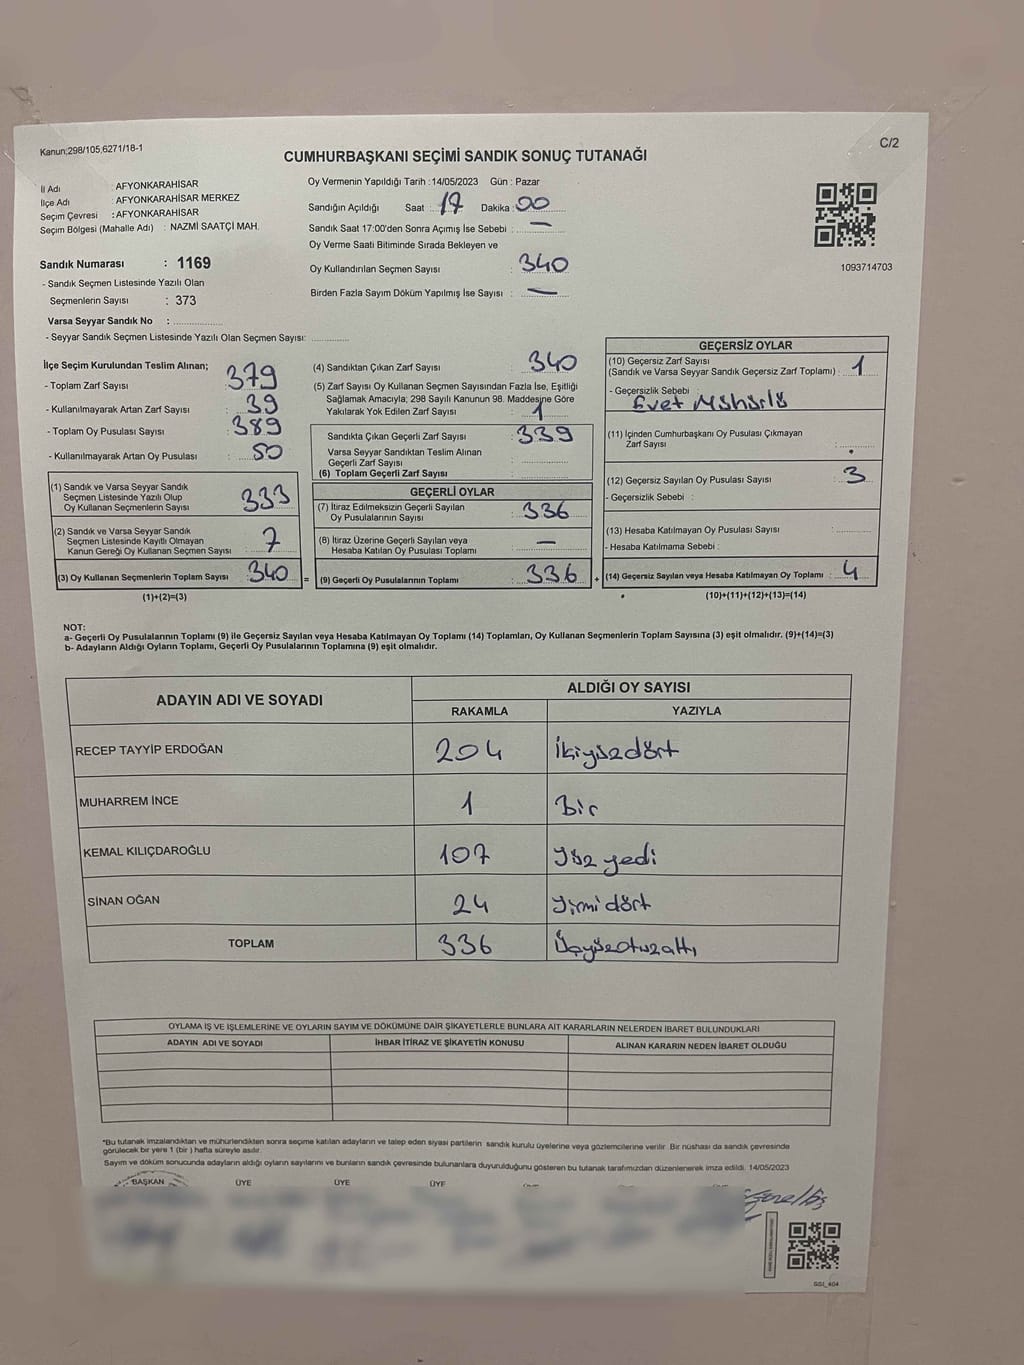 Kanun:298/105,6271/18-1
C/2
CUMHURBAŞKANI SEÇİMİ SANDIK SONUÇ TUTANAĞI
İl Adı : AFYONKARAHİSAR
İlçe Adı : AFYONKARAHİSAR MERKEZ
Seçim Çevresi : AFYONKARAHİSAR
Seçim Bölgesi (Mahalle Adı) : NAZMİ SAATÇİ MAH.
Sandık Numarası : 1169
- Sandık Seçmen Listesinde Yazılı Olan
Seçmenlerin Sayısı : 373
Varsa Seyyar Sandık No :
- Seyyar Sandık Seçmen Listesinde Yazılı Olan Seçmen Sayısı:
Oy Vermenin Yapıldığı Tarih :14/05/2023 Gün : Pazar
Sandığın Açıldığı Saat : 17 Dakika : 00
Sandık Saat 17:00'den Sonra Açımış İse Sebebi : —
Oy Verme Saati Bitiminde Sırada Bekleyen ve
Oy Kullandırılan Seçmen Sayısı : 340
Birden Fazla Sayım Döküm Yapılmış İse Sayısı : —
1093714703
İlçe Seçim Kurulundan Teslim Alınan;
- Toplam Zarf Sayısı : 379
- Kullanılmayarak Artan Zarf Sayısı : 39
- Toplam Oy Pusulası Sayısı : 389
- Kullanılmayarak Artan Oy Pusulası : 50
(1) Sandık ve Varsa Seyyar Sandık
Seçmen Listesinde Yazılı Olup
Oy Kullanan Seçmenlerin Sayısı : 333
(2) Sandık ve Varsa Seyyar Sandık
Seçmen Listesinde Kayıtlı Olmayan
Kanun Gereği Oy Kullanan Seçmen Sayısı : 7
(3) Oy Kullanan Seçmenlerin Toplam Sayısı : 340 =
(1)+(2)=(3)
(4) Sandıktan Çıkan Zarf Sayısı : 340
(5) Zarf Sayısı Oy Kullanan Seçmen Sayısından Fazla İse, Eşitliği
Sağlamak Amacıyla; 298 Sayılı Kanunun 98. Maddesine Göre
Yakılarak Yok Edilen Zarf Sayısı : 1
Sandıkta Çıkan Geçerli Zarf Sayısı : 339
Varsa Seyyar Sandıktan Teslim Alınan
Geçerli Zarf Sayısı :
(6) Toplam Geçerli Zarf Sayısı :
GEÇERLİ OYLAR
(7) İtiraz Edilmeksizin Geçerli Sayılan
Oy Pusulalarının Sayısı : 336
(8) İtiraz Üzerine Geçerli Sayılan veya
Hesaba Katılan Oy Pusulası Toplamı : —
(9) Geçerli Oy Pusulalarının Toplamı : 336 +
GEÇERSİZ OYLAR
(10) Geçersiz Zarf Sayısı
(Sandık ve Varsa Seyyar Sandık Geçersiz Zarf Toplamı) : 1
- Geçersizlik Sebebi :
Evet Mühürlü
(11) İçinden Cumhurbaşkanı Oy Pusulası Çıkmayan
Zarf Sayısı :
(12) Geçersiz Sayılan Oy Pusulası Sayısı : 3
- Geçersizlik Sebebi :
(13) Hesaba Katılmayan Oy Pusulası Sayısı :
- Hesaba Katılmama Sebebi :
(14) Geçersiz Sayılan veya Hesaba Katılmayan Oy Toplamı : 4
(10)+(11)+(12)+(13)=(14)
NOT:
a- Geçerli Oy Pusulalarının Toplamı (9) ile Geçersiz Sayılan veya Hesaba Katılmayan Oy Toplamı (14) Toplamları, Oy Kullanan Seçmenlerin Toplam Sayısına (3) eşit olmalıdır. (9)+(14)=(3)
b- Adayların Aldığı Oyların Toplamı, Geçerli Oy Pusulalarının Toplamına (9) eşit olmalıdır.
ADAYIN ADI VE SOYADI
ALDIĞI OY SAYISI
RAKAMLA YAZIYLA
RECEP TAYYİP ERDOĞAN 204 İkiyüzdört
MUHARREM İNCE 1 Bir
KEMAL KILIÇDAROĞLU 107 Yüz yedi
SİNAN OĞAN 24 Yirmi dört
TOPLAM 336 Üçyüzotuzaltı
OYLAMA İŞ VE İŞLEMLERİNE VE OYLARIN SAYIM VE DÖKÜMÜNE DAİR ŞİKAYETLERLE BUNLARA AİT KARARLARIN NELERDEN İBARET BULUNDUKLARI
ADAYIN ADI VE SOYADI İHBAR İTİRAZ VE ŞİKAYETİN KONUSU ALINAN KARARIN NEDEN İBARET OLDUĞU
*Bu tutanak imzalandıktan ve mühürlendikten sonra seçime katılan adayların ve talep eden siyasi partilerin sandık kurulu üyelerine veya gözlemcilerine verilir. Bir nüshası da sandık çevresinde
görülecek bir yere 1 (bir ) hafta süreyle asılır.
Sayım ve döküm sonucunda adayların aldığı oyların sayılarını ve bunların sandık çevresinde bulunanlara duyurulduğunu gösteren bu tutanak tarafımızdan düzenlenerek imza edildi. 14/05/2023
BAŞKAN ÜYE ÜYE ÜYE